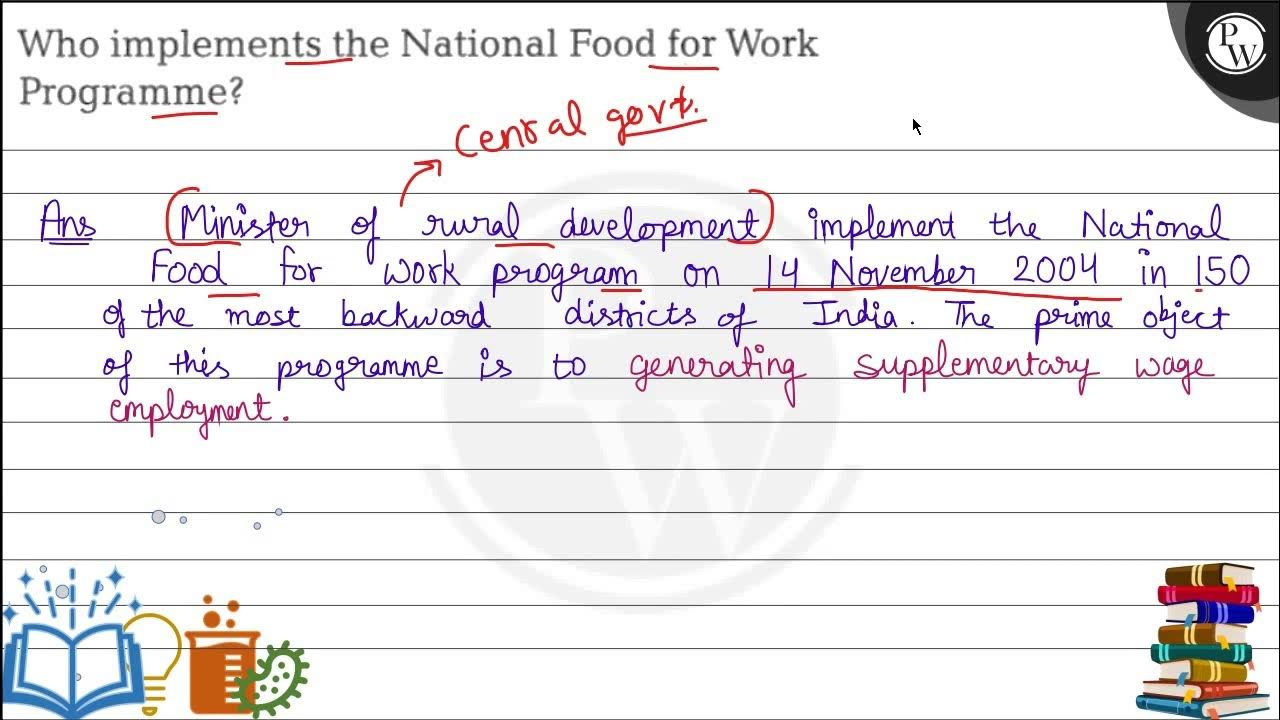 Who implements the National Food for Work
Programme?
PW
Central govt.
Ans (Minister of rural development) implement the National
Food for work program on 14 November 2004 in 150
of the most backward districts of India. The prime object
of this programme is to generating supplementary wage
employment.
PW